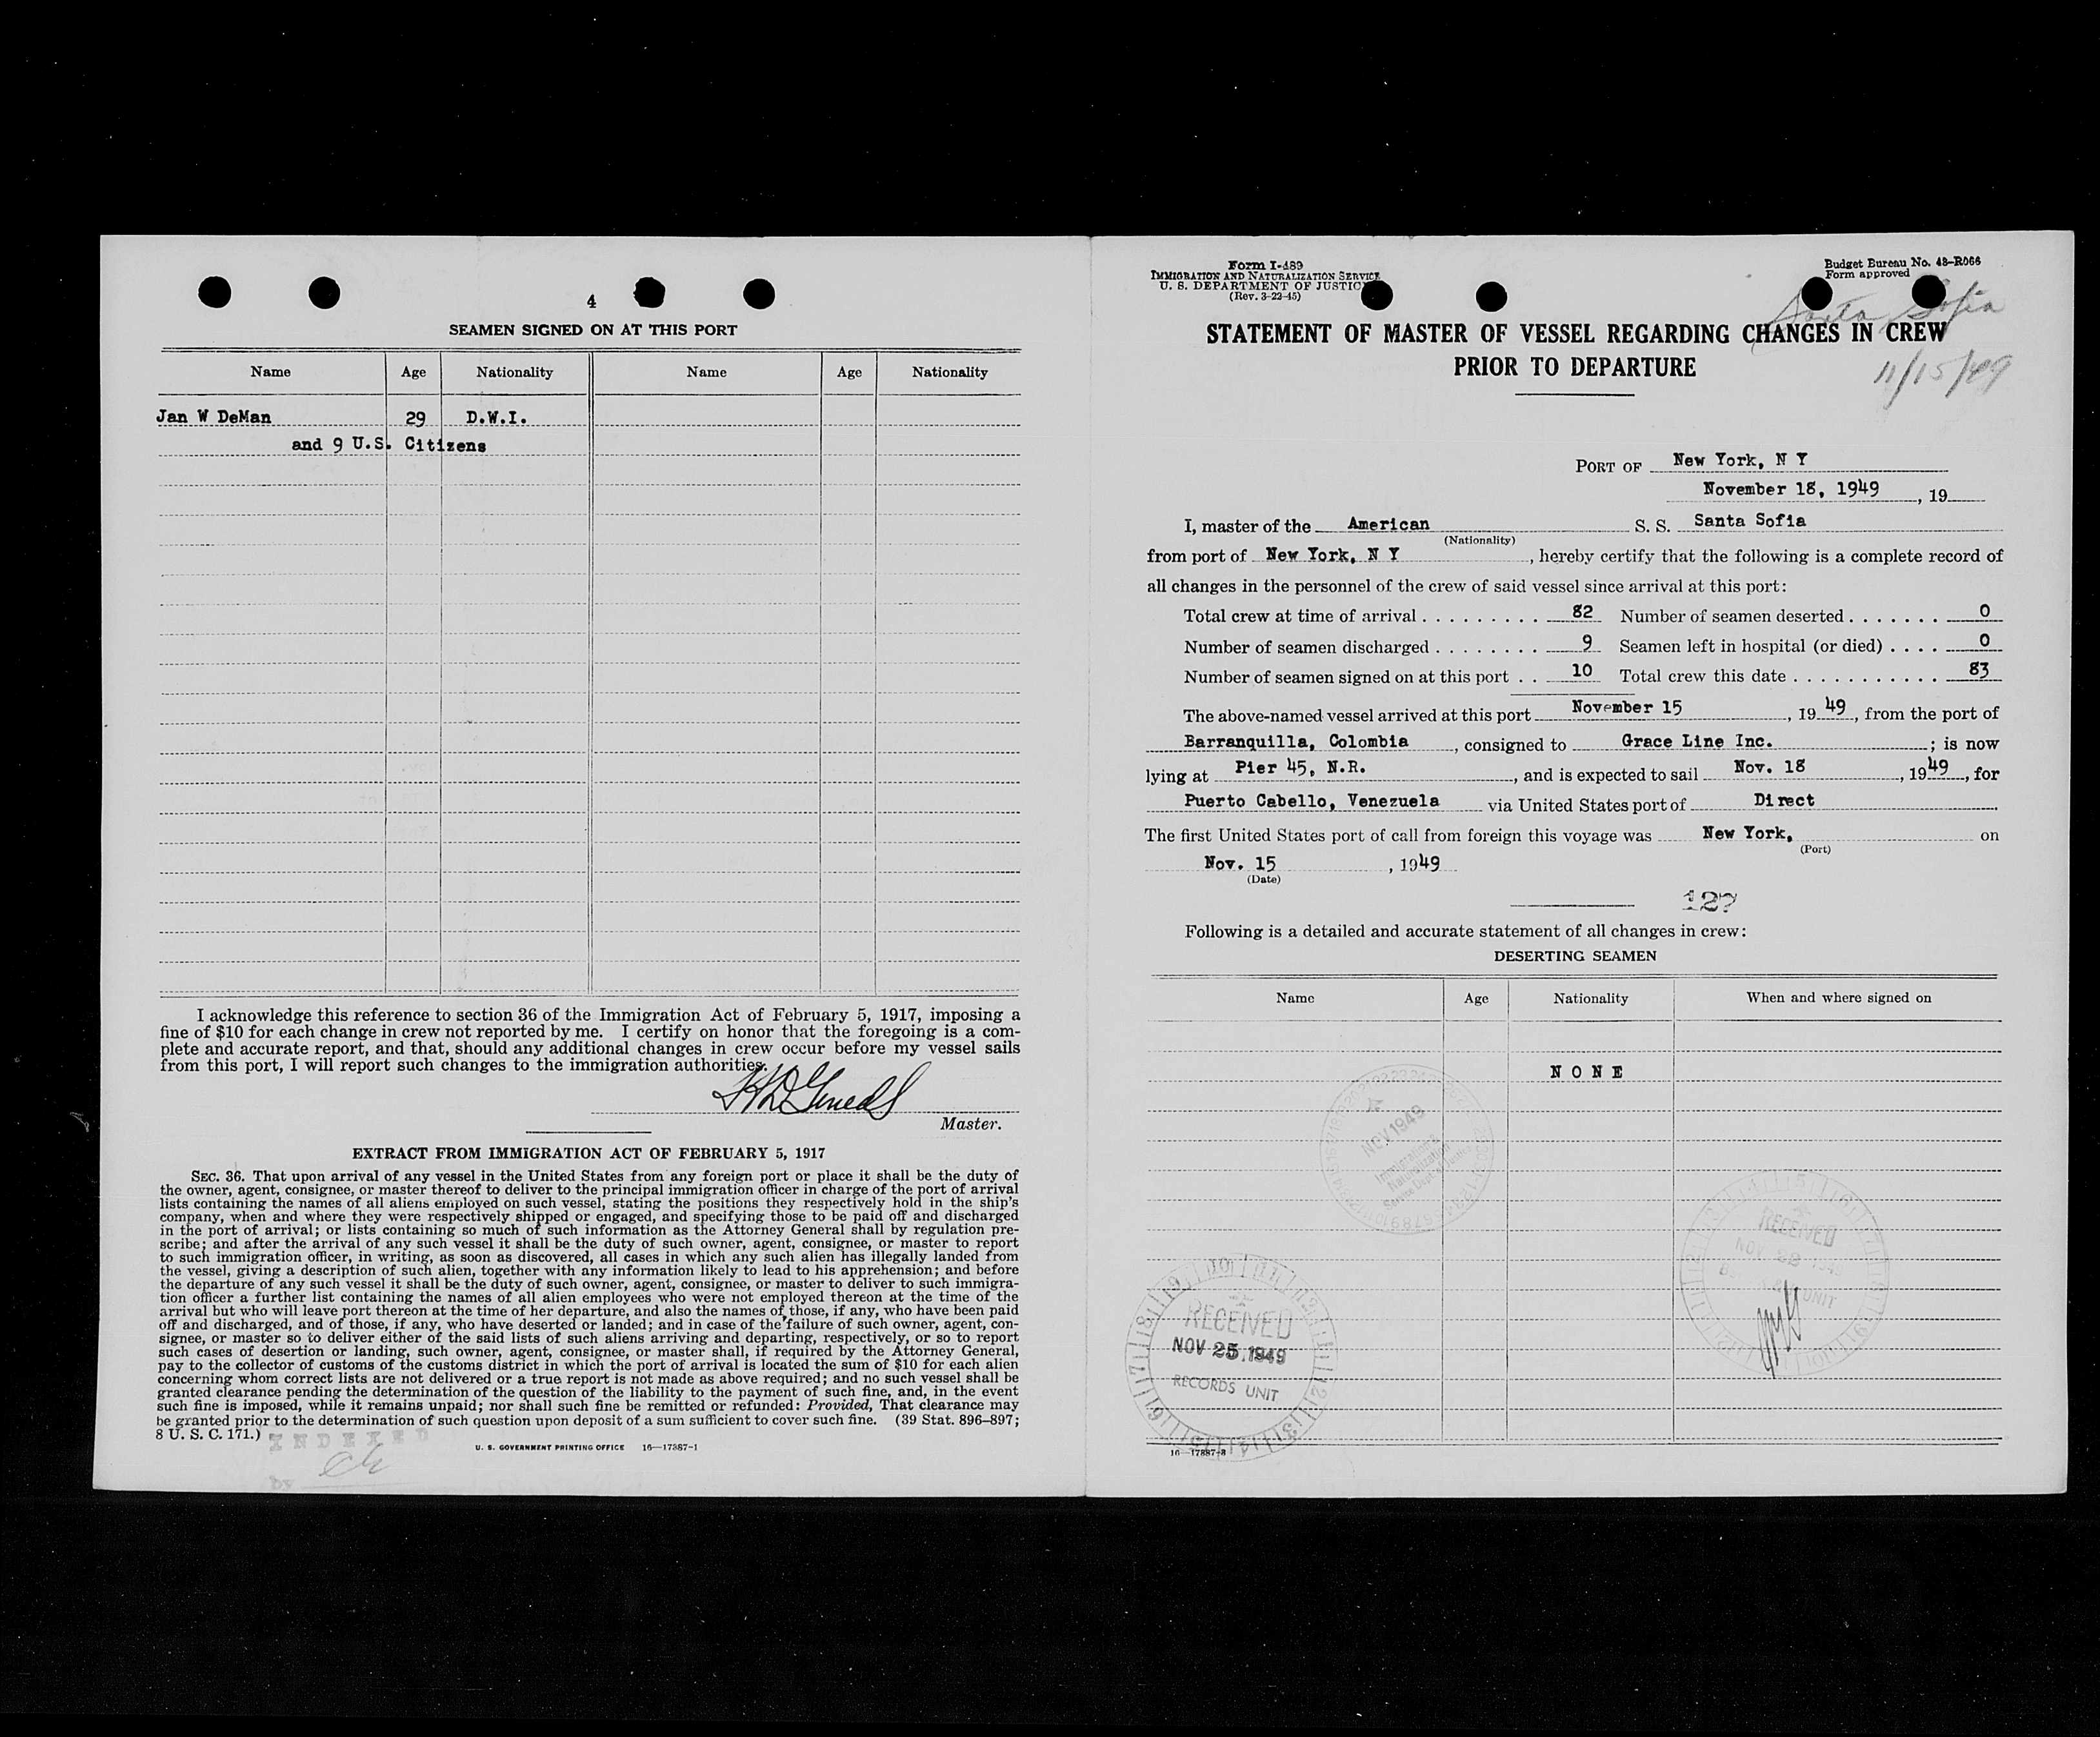 4
SEAMEN SIGNED ON AT THIS PORT
Name Age Nationality Name Age Nationality
Jan W DeMan 29 D.W.I.
and 9 U.S. Citizens
I acknowledge this reference to section 36 of the Immigration Act of February 5, 1917, imposing a
fine of $10 for each change in crew not reported by me. I certify on honor that the foregoing is a com-
plete and accurate report, and that, should any additional changes in crew occur before my vessel sails
from this port, I will report such changes to the immigration authorities.
Master.
EXTRACT FROM IMMIGRATION ACT OF FEBRUARY 5, 1917
SEC. 36. That upon arrival of any vessel in the United States from any foreign port or place it shall be the duty of
the owner, agent, consignee, or master thereof to deliver to the principal immigration officer in charge of the port of arrival
lists containing the names of all aliens employed on such vessel, stating the positions they respectively hold in the ship's
company, when and where they were respectively shipped or engaged, and specifying those to be paid off and discharged
in the port of arrival; or lists containing so much of such information as the Attorney General shall by regulation pre-
scribe; and after the arrival of any such vessel it shall be the duty of such owner, agent, consignee, or master to report
to such immigration officer, in writing, as soon as discovered, all cases in which any such alien has illegally landed from
the vessel, giving a description of such alien, together with any information likely to lead to his apprehension; and before
the departure of any such vessel it shall be the duty of such owner, agent, consignee, or master to deliver to such immigra-
tion officer a further list containing the names of all alien employees who were not employed thereon at the time of the
arrival but who will leave port thereon at the time of her departure, and also the names of those, if any, who have been paid
off and discharged, and of those, if any, who have deserted or landed; and in case of the failure of such owner, agent, con-
signee, or master so to deliver either of the said lists of such aliens arriving and departing, respectively, or so to report
such cases of desertion or landing, such owner, agent, consignee, or master shall, if required by the Attorney General,
pay to the collector of customs of the customs district in which the port of arrival is located the sum of $10 for each alien
concerning whom correct lists are not delivered or a true report is not made as above required; and no such vessel shall be
granted clearance pending the determination of the question of the liability to the payment of such fine, and, in the event
such fine is imposed, while it remains unpaid; nor shall such fine be remitted or refunded: Provided, That clearance may
be granted prior to the determination of such question upon deposit of a sum sufficient to cover such fine. (39 Stat. 896–897;
8 U. S. C. 171.)
INDEXED
by
U. S. GOVERNMENT PRINTING OFFICE 16—17387-1
Form I-489
IMMIGRATION AND NATURALIZATION SERVICE
U. S. DEPARTMENT OF JUSTICE
(Rev. 3-22-45)
Budget Bureau No. 43–R066
Form approved
Santa Sofia
STATEMENT OF MASTER OF VESSEL REGARDING CHANGES IN CREW
PRIOR TO DEPARTURE
11/15/49
PORT OF New York, N Y
November 18, 1949, 19
I, master of the American S. S. Santa Sofia
(Nationality)
from port of New York, N Y, hereby certify that the following is a complete record of
all changes in the personnel of the crew of said vessel since arrival at this port:
Total crew at time of arrival 82 Number of seamen deserted 0
Number of seamen discharged 9 Seamen left in hospital (or died) 0
Number of seamen signed on at this port 10 Total crew this date 83
The above-named vessel arrived at this port November 15, 1949, from the port of
Barranquilla, Colombia, consigned to Grace Line Inc.; is now
lying at Pier 45, N.R., and is expected to sail Nov. 18, 1949, for
Puerto Cabello, Venezuela via United States port of Direct
The first United States port of call from foreign this voyage was New York, on
(Port)
Nov. 15, 1949
(Date)
127
Following is a detailed and accurate statement of all changes in crew:
DESERTING SEAMEN
Name Age Nationality When and where signed on
NONE
NOV 1949
Immigration &
Naturalization
RECEIVED
NOV 28 1949
UNIT
RECEIVED
NOV 25 1949
RECORDS UNIT
16—17387-3